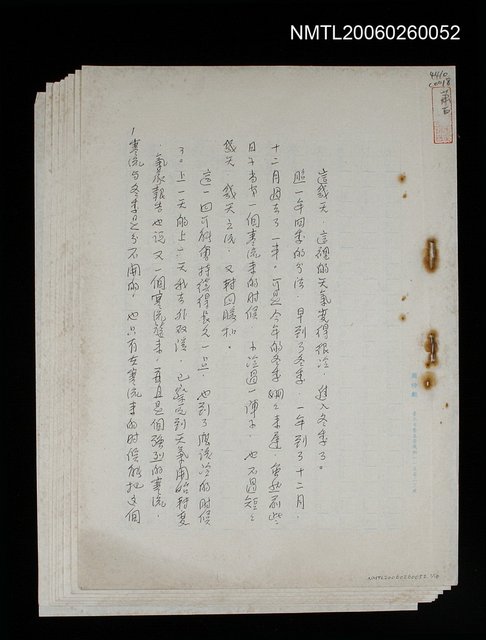 NMTL20060260052
這幾天,這裡的天氣變得很冷,進入冬季了。
照一年四季的分法,早到了冬季,一年到了十二月,
十二月過去了一半,可是今年的冬季姍姍來遲,雖然前些
日子當有一個寒流來的時候,小冷過一陣子,也不過短短
幾天,幾天之後,又轉回暖和。
這一回可能會持續得長久一點,也到了應該冷的時候
了。上一天的上一天我去
,已感受到天氣開始轉變
,氣象報告也說又一個寒流襲來,而且是個強烈的寒流。
寒流與冬季是分不開的,也只有在寒流來的時候能把這個
1
NMTL20060260052